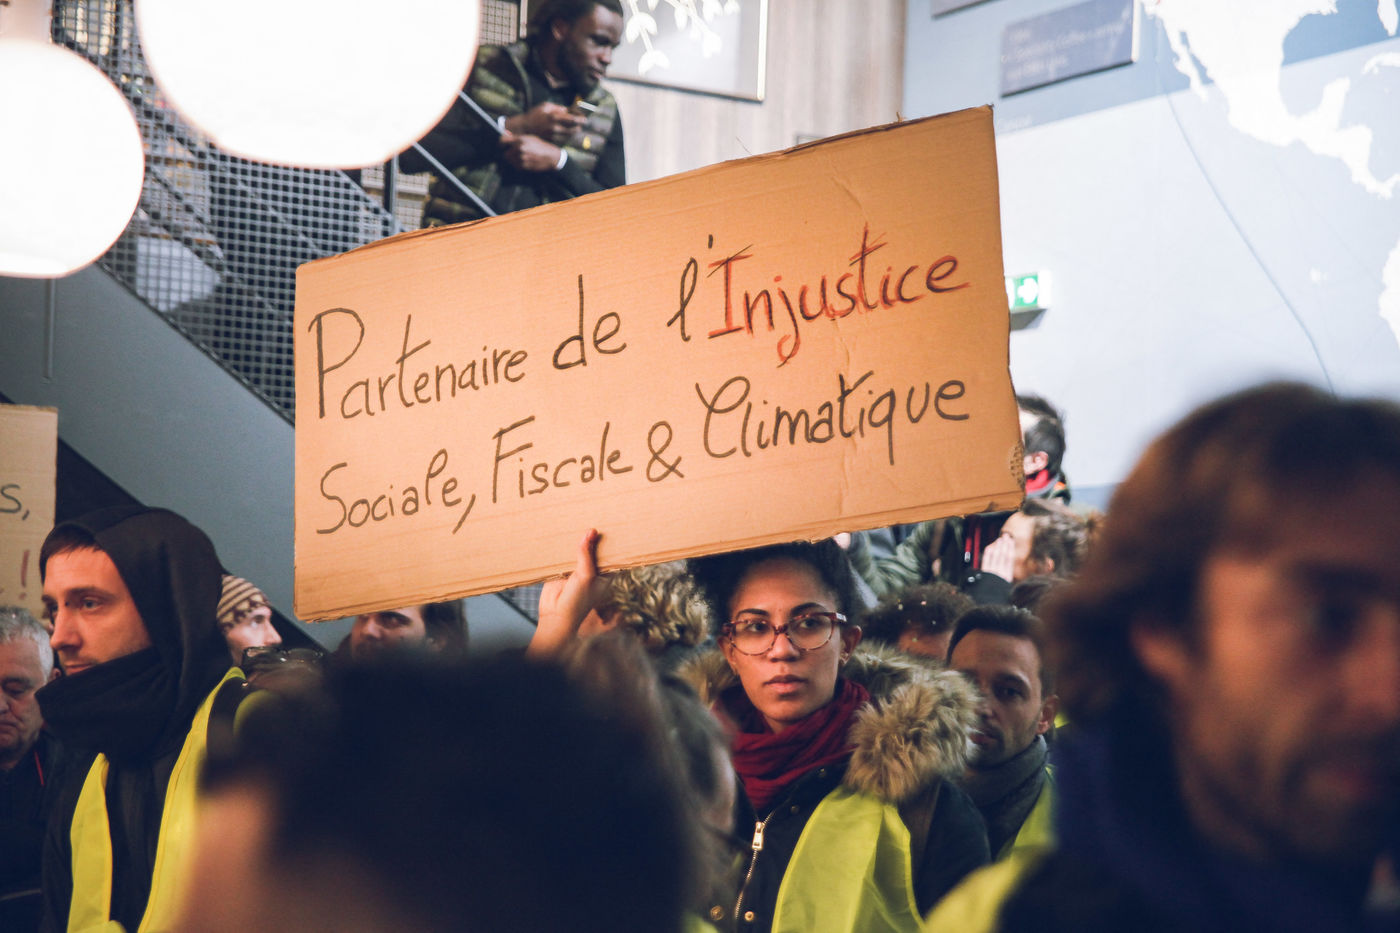 Partenaire de l'Injustice
Sociale, Fiscale & Climatique
s,
!